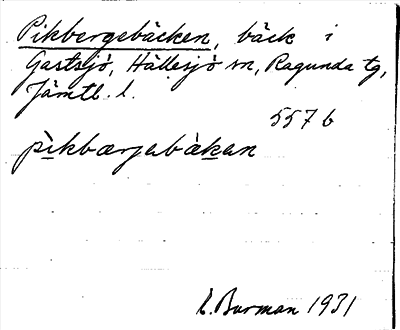 Pikbergebäcken, bäck i
Gastsjö, Hällesjö sn, Ragunda tg,
Jämtl. l.
557 b
pikbærjabäkan
L. Burman 1931